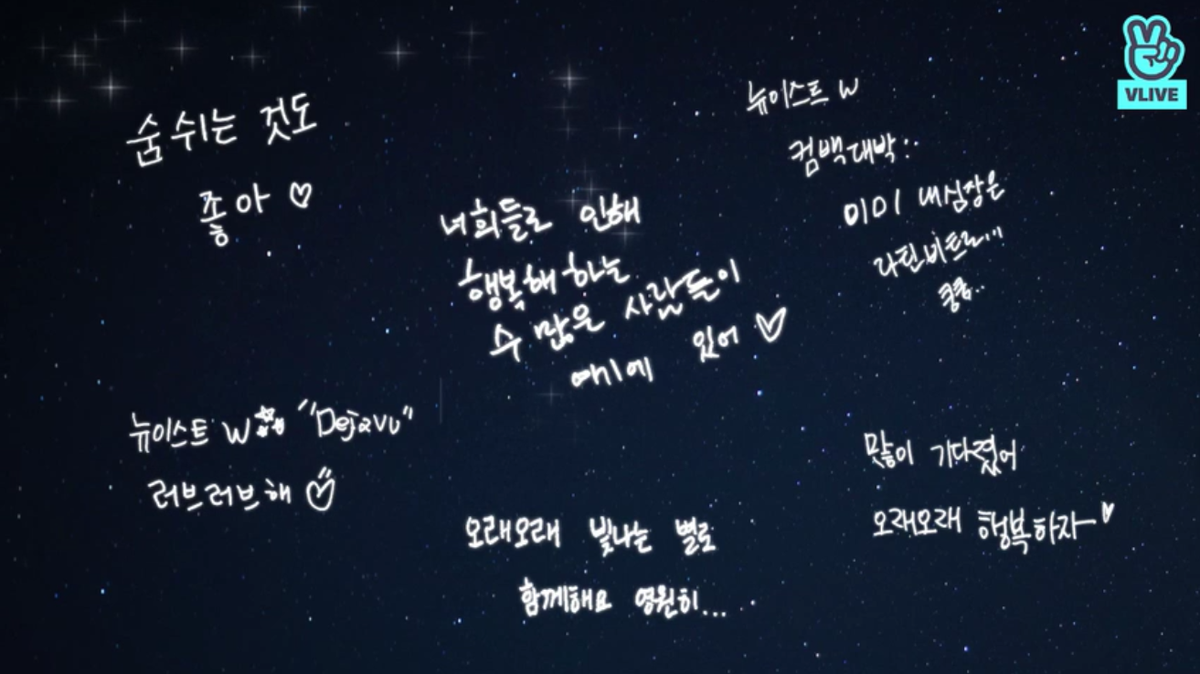 숨 쉬는 것도
좋아 ♡
너희들로 인해
행복해 하는
수 많은 사람들이
여기에 있어 ♡
뉴이스트 W
컴백대박..
이미 내심장은
라틴비트로...
쿵쿵..
VLIVE
뉴이스트 W "Dejavu"
러브러브해 ♡
오래오래 빛나는 별로
함께해요 영원히...
많이 기다렸어
오래오래 행복하자~♡